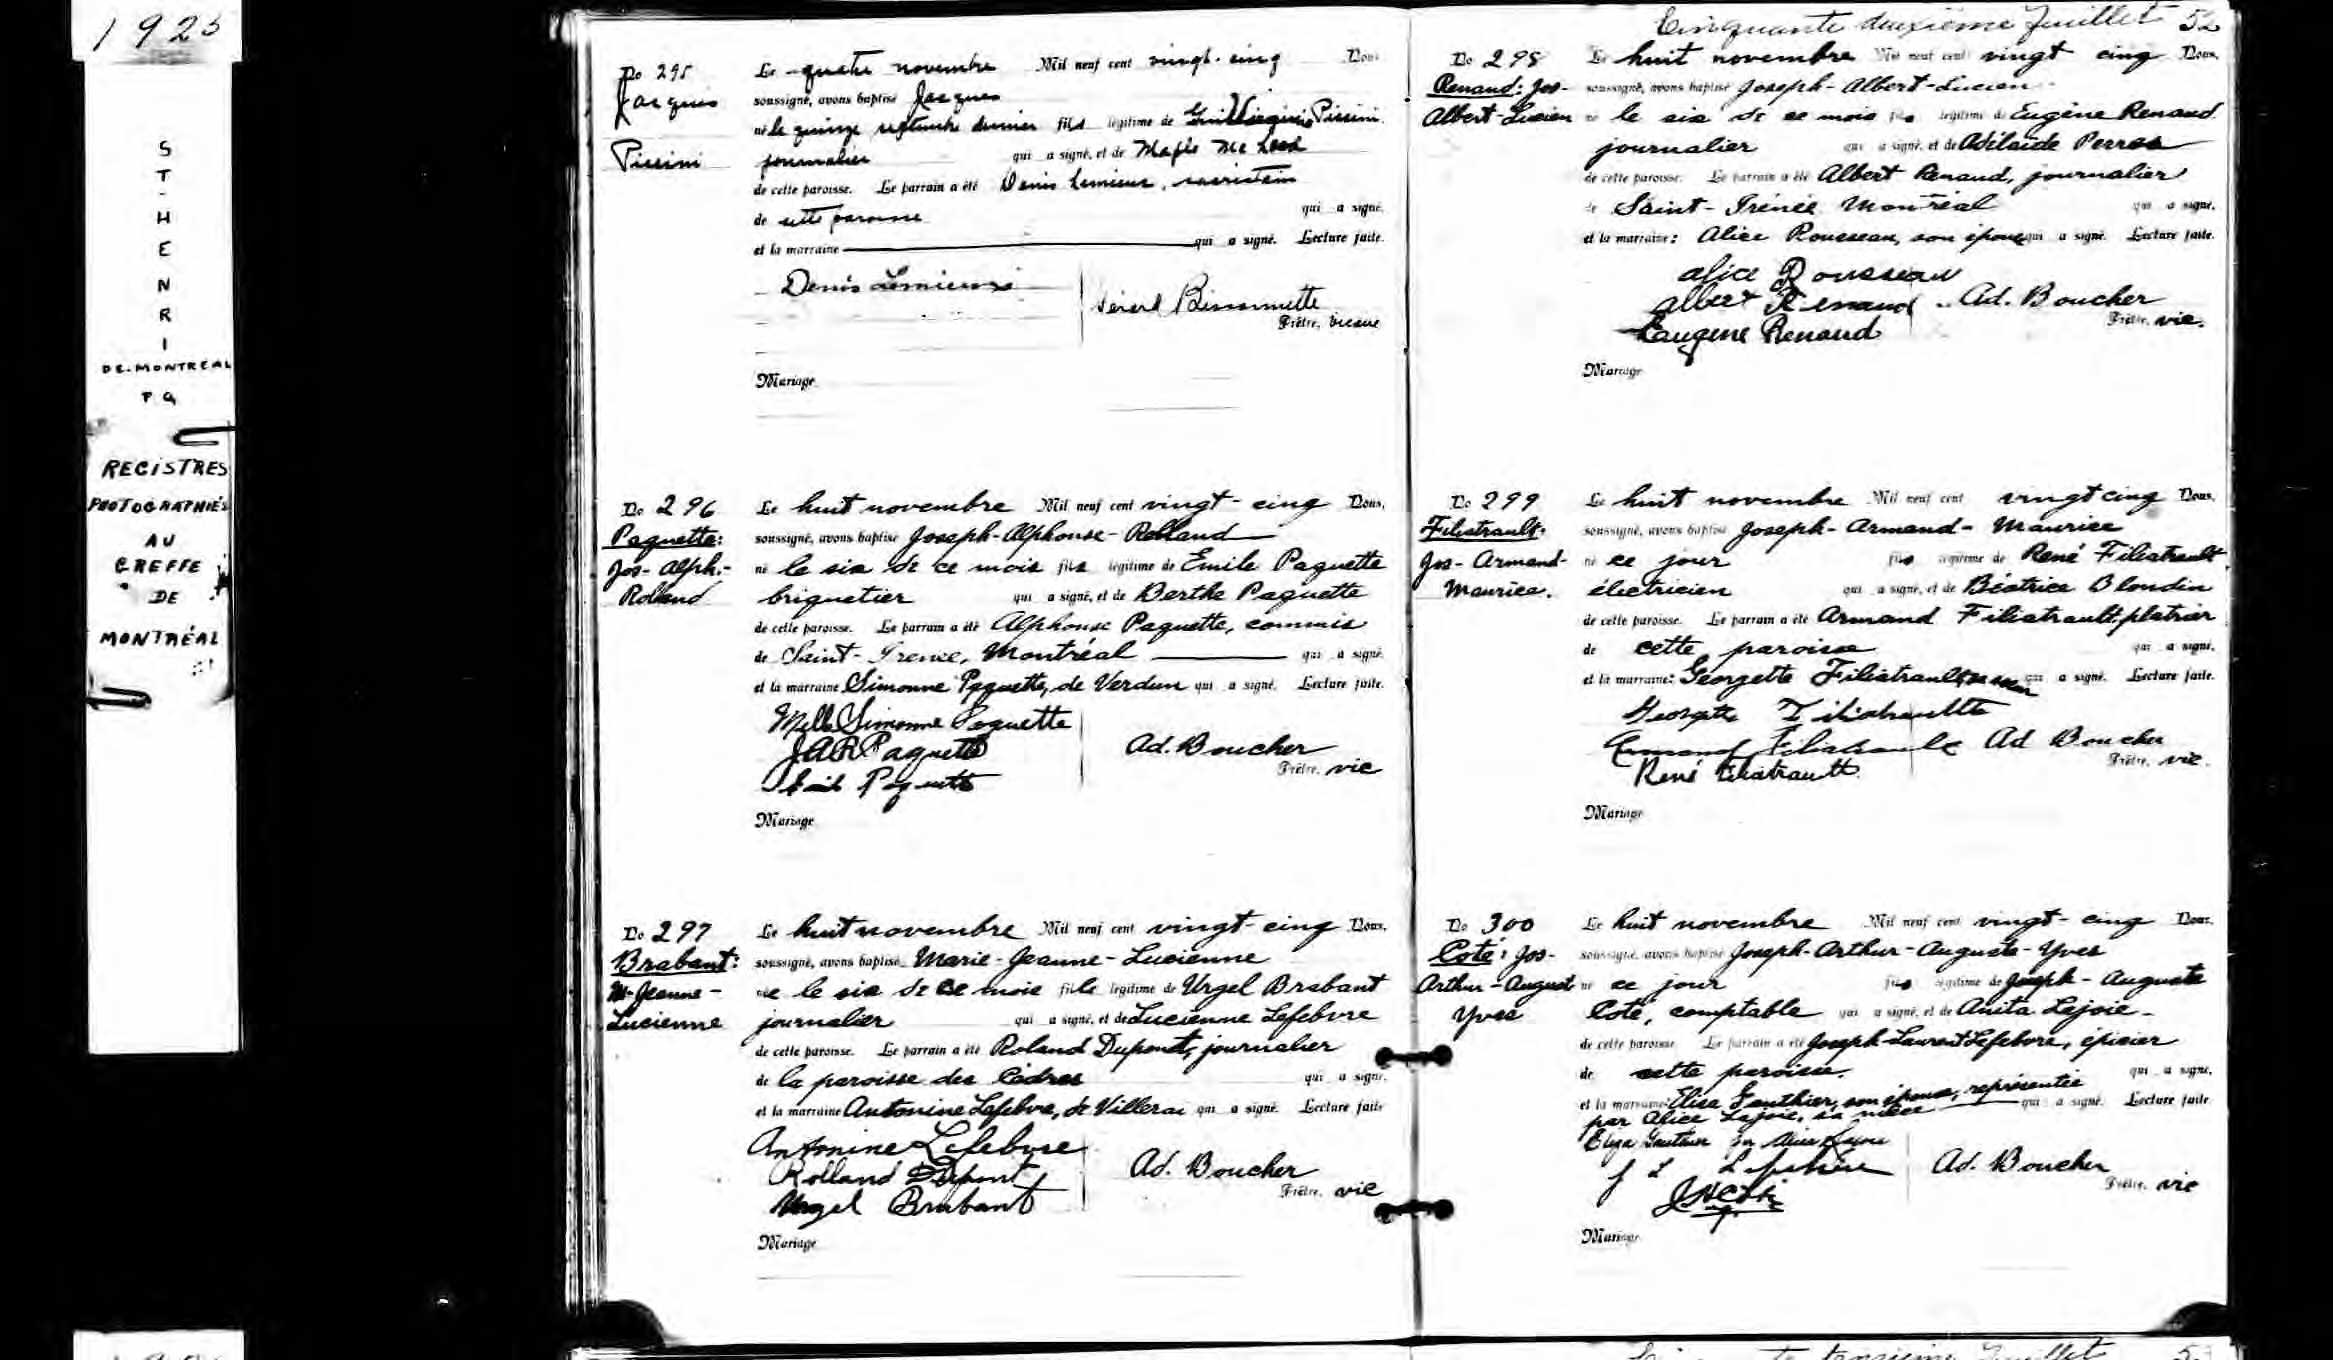 1925
ST-HENRI
DE-MONTREAL
P Q
REGISTRES
PHOTOGRAPHIÉS
AU
GREFFE
DE
MONTRÉAL
No 295
Jacques
Piccini
Le quatre novembre Mil neuf cent vingt-cinq Nous
soussigné, avons baptisé Jacques
né le quinze septembre dernier fils légitime de Piccini
journalier qui a signé, et de Maple Mc
de cette paroisse. Le parrain a été Denis Lemieux, sacristain
de cette paroisse qui a signé.
et la marraine qui a signé. Lecture faite.
Denis Lemieux
Gérard Bissonnette
Prêtre, vicaire
Mariage
No 296
Paquette:
Jos-Alph.-
Rolland
Le huit novembre Mil neuf cent vingt-cinq Nous,
soussigné, avons baptisé Joseph-Alphonse-Rolland
né le six de ce mois fils légitime de Emile Paquette
briquetier qui a signé, et de Berthe Paquette
de cette paroisse. Le parrain a été Alphonse Paquette, commis
de Saint-Irenée, Montréal qui a signé.
et la marraine Simonne Paquette, de Verdun qui a signé. Lecture faite.
Melle Simonne Paquette
J.A.R Paquette
Emile Paquette
Ad. Boucher
Prêtre, vic
Mariage
No 297
Brabant:
M-Jeanne-
Lucienne
Le huit novembre Mil neuf cent vingt-cinq Nous,
soussigné, avons baptisé Marie-Jeanne-Lucienne
née le six de ce mois fille légitime de Urgel Brabant
journalier qui a signé, et de Lucienne Lefebvre
de cette paroisse. Le parrain a été Roland Dupont, journalier
de la paroisse des Cèdres qui a signé.
et la marraine Antonine Lefebvre, de Villeray qui a signé. Lecture faite
Antonine Lefebvre
Rolland Dupont
Urgel Brabant
Ad. Boucher
Prêtre, vic
Mariage
Cinquante deuxième feuillet 52
No 298
Renaud: Jos-
Albert-Lucien
Le huit novembre Mil neuf cent vingt cinq Nous,
soussigné, avons baptisé Joseph-Albert-Lucien
né le six de ce mois fils légitime de Eugène Renaud
journalier qui a signé, et de Adélaïde Perras
de cette paroisse. Le parrain a été Albert Renaud, journalier
de Saint-Irénée Montréal qui a signé.
et la marraine: Alice Rousseau, son épouse qui a signé. Lecture faite.
Alice Rousseau
Albert Renaud
Eugene Renaud
Ad. Boucher
Prêtre, vic.
Mariage
No 299
Filiatrault:
Jos-Armand-
Maurice.
Le huit novembre Mil neuf cent vingt cinq Nous,
soussigné, avons baptisé Joseph-Armand-Maurice
né ce jour fils légitime de René Filiatrault,
électricien qui a signé, et de Béatrice Blondin
de cette paroisse. Le parrain a été Armand Filiatrault, platrier
de cette paroisse qui a signé.
et la marraine: Georgette Filiatrault, sa sœur qui a signé. Lecture faite.
Georgette Filiatrault
Armand Filiatrault
René Filiatrault
Ad Boucher
Prêtre, vic.
Mariage
No 300
Coté: Jos-
Arthur-August
Yves
Le huit novembre Mil neuf cent vingt-cinq Nous,
soussigné, avons baptisé Joseph-Arthur-Auguste-Yves
né ce jour fils légitime de Joseph-Auguste
Coté, comptable qui a signé, et de Anita Lajoie
de cette paroisse Le parrain a été Joseph-Laurent Lefebvre, épicier
de cette paroisse. qui a signé,
et la marraine: Elisa Gauthier, son épouse, représentée
par Alice Lajoie, sa nièce qui a signé. Lecture faite
Eliza Gauthier par Alice Lajoie
J L Lefebvre
Ad. Boucher
Prêtre, vic
Mariage